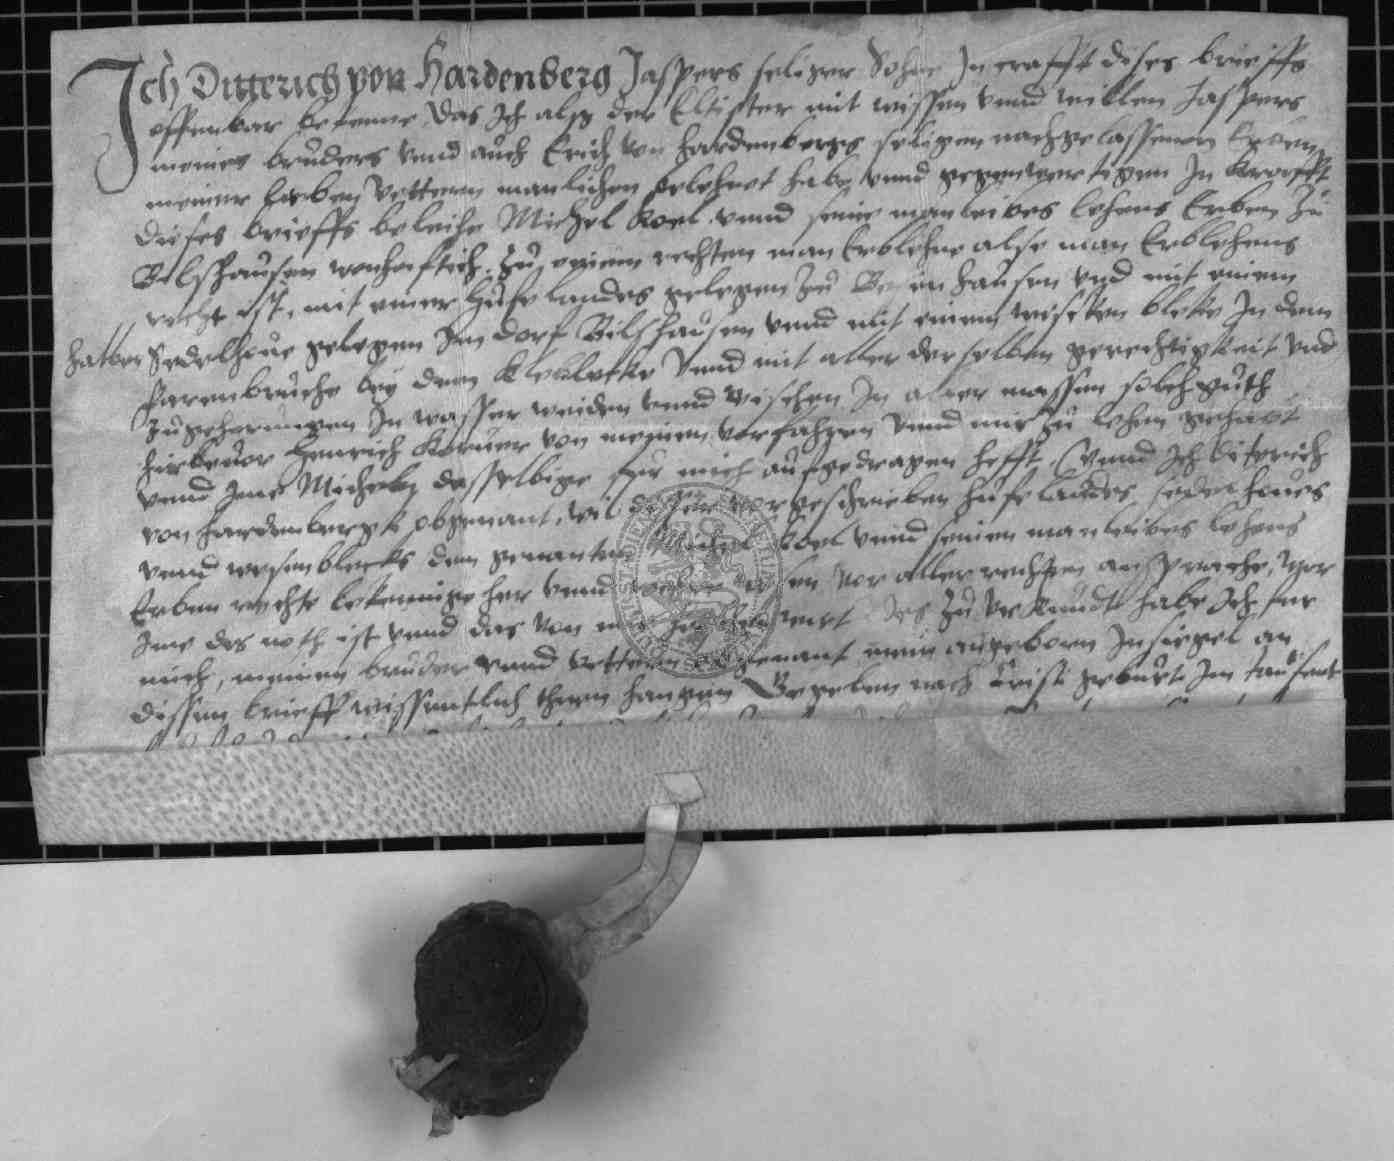 Ich Ditterich von Hardenberg Jaspers seliger Sohne In crafft dises brieffs
offenbar bekenne, das Ich alß der Eltister mit wissen vnnd willen Jaspers
meines bruders vnnd auch Erich von Hardenbergs seligen nachgelassenen Erben
meiner lieben Vetteren manlichen belehnet habe, vnnd gegenwertigen In Krafft
dieses brieffs beleihe Michel Koel vnnd seine manleibes lehens Erben Zu
Bilshausen wonhafftich, Zu einem rechten man Erblehne alse man Erblehens
recht ist, mit einer Hufe landes gelegen Zu hausen vnd mit einem
halben Sedelhoue gelegen Im dorf Bilshausen vnnd mit einem wischen blecke In dem
bruche bey dem vnnd mit aller derselben gerechtigkeit vnd
zugehorungen In wasser weiden vnnd wischen In aller massen solch guth
hirbeuor Henrich von meinen vorfahren vnnd mir zu lehen gehabt
vnnd Ime Michely dasselbige fur mich aufgedragen hefft, Vnnd Ich diterich
von Hardenbergk obgenant, wil vorgeschrieben hufe landes, sedelhoues
vnnd wesenblecks dem genanten Michel Koel vnnd seinen manleibes lehens
Erben rechte bekennige her vnnd vor aller rechten ansprache, wor
Ime des noth ist vnnd das von wirt. Des zu vrkundt habe Ich fur
mich, meinen bruder vnnd vetteren obgenant mein angeborn Insiegel an
dissen brieff wissentlich thun hangen Gegeben nach Crist geburt Im tausent